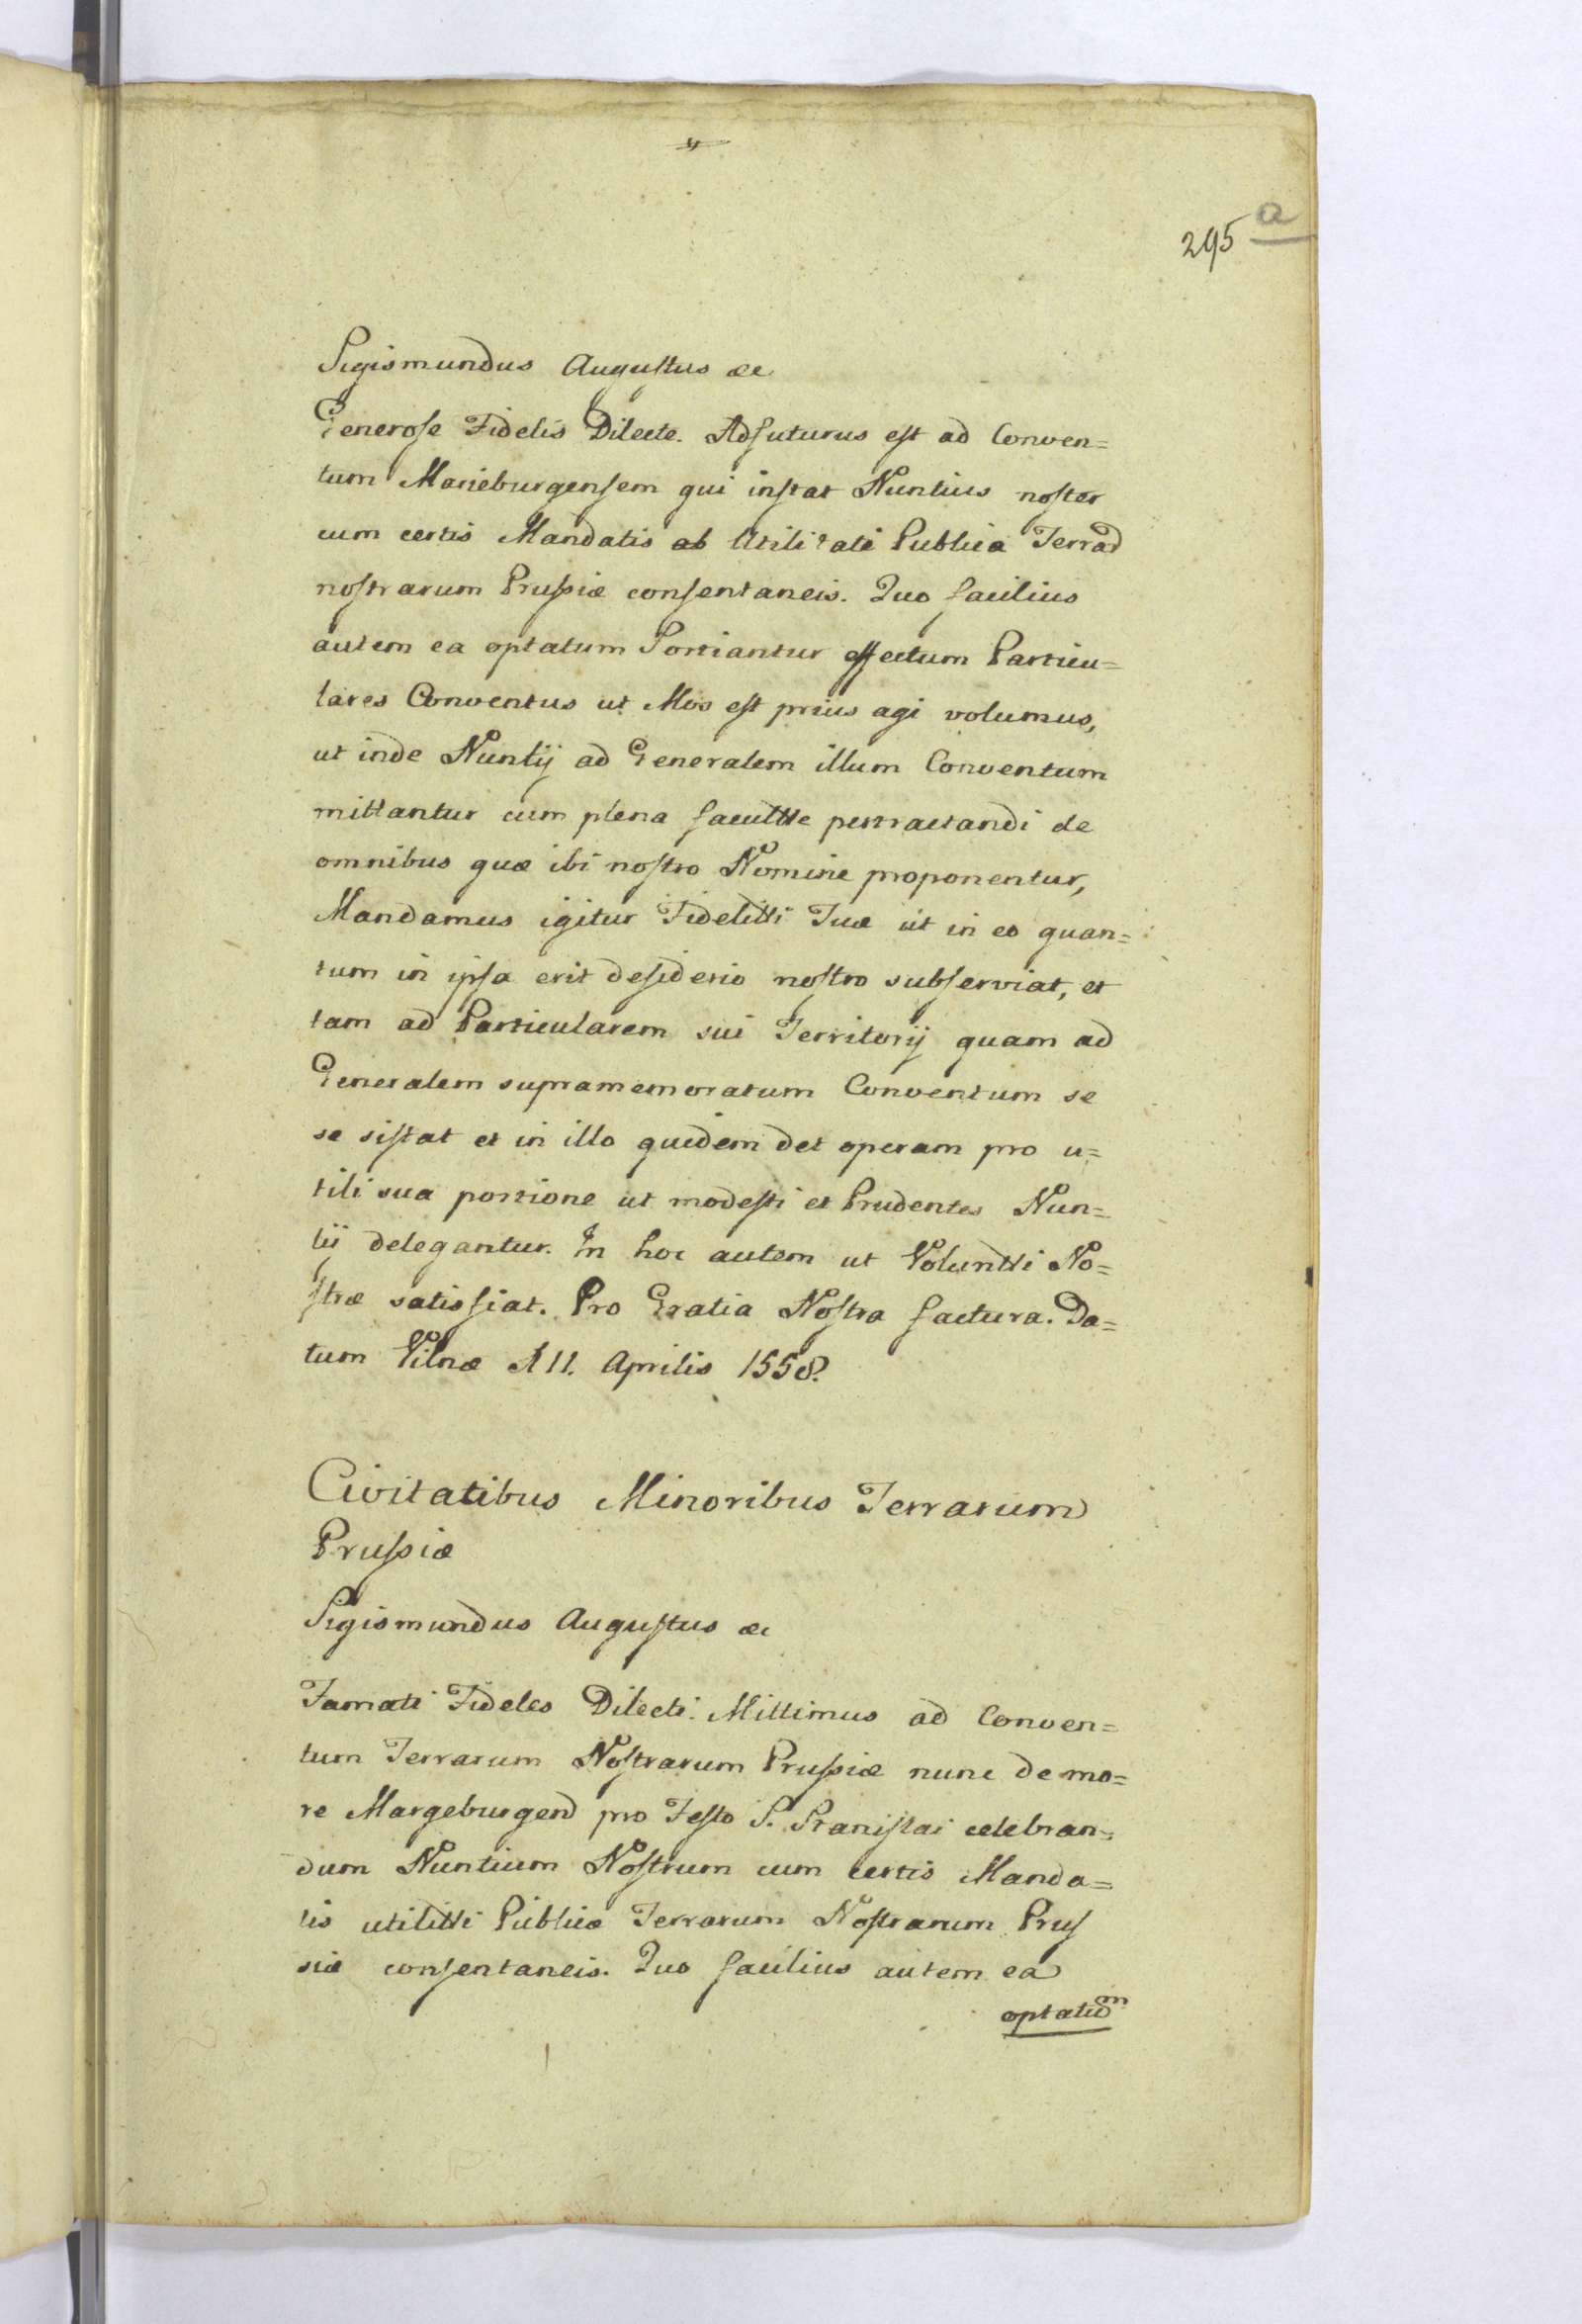 295 a
Sigismundus Augustus ec
Generose Fidelis Dilecte. Adfuturus est ad Conven=
tum Marieburgensem qui instat Nuntius noster
cum certis Mandatis ab Utilitati Publica Terrar
nostrarum Prussiæ consentaneis. Quo facilius
autem ea optatum Sortiantur effectum Particu=
lares Conventus ut Mos est prius agi volumus,
ut inde Nuntij ad Generalem illum Conventum
mittantur cum plena facultte pertractandi de
omnibus quæ ibi nostro Nomine proponentur,
Mandamus igitur Fidelitti Tuæ ut in eo quan=
tum in ipsa erit desiderio nostro subserviat, et
tam ad Particularem sui Territorij quam ad
Generalem supramemoratum Conventum se
se sistat et in illo quidem det operam pro u=
tili sua portione ut modesti et Prudentes Nun=
tii delegantur. In hoc autem ut Voluntti No=
stræ satisfiat. Pro Gratia Nostra factura. Da=
tum Vilnæ 11. Aprilis 1558.
Civitatibus Minoribus Terrarum
Prussiæ
Sigismundus Augustus ec
Famati Fideles Dilecti. Mittimus ad Conven=
tum Terrarum Nostrarum Prussiæ nunc de mo=
re Margeburgen pro Festo S. Stanislai celebran=
dum Nuntium Nostrum cum certis Manda=
tis utilitti Publicæ Terrarum Nostrarum Prus
siæ consentaneis. Quo facilius autem ea
optatum